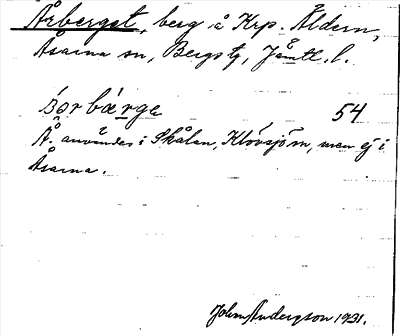 Årberget, berg å Krp. Åldern,
Åsarna sn, Bergs tg, Jämtl. l.
Å. användes i Skålan, Klövsjön, men ej i
Åsarna.
54
John Andersson 1931.